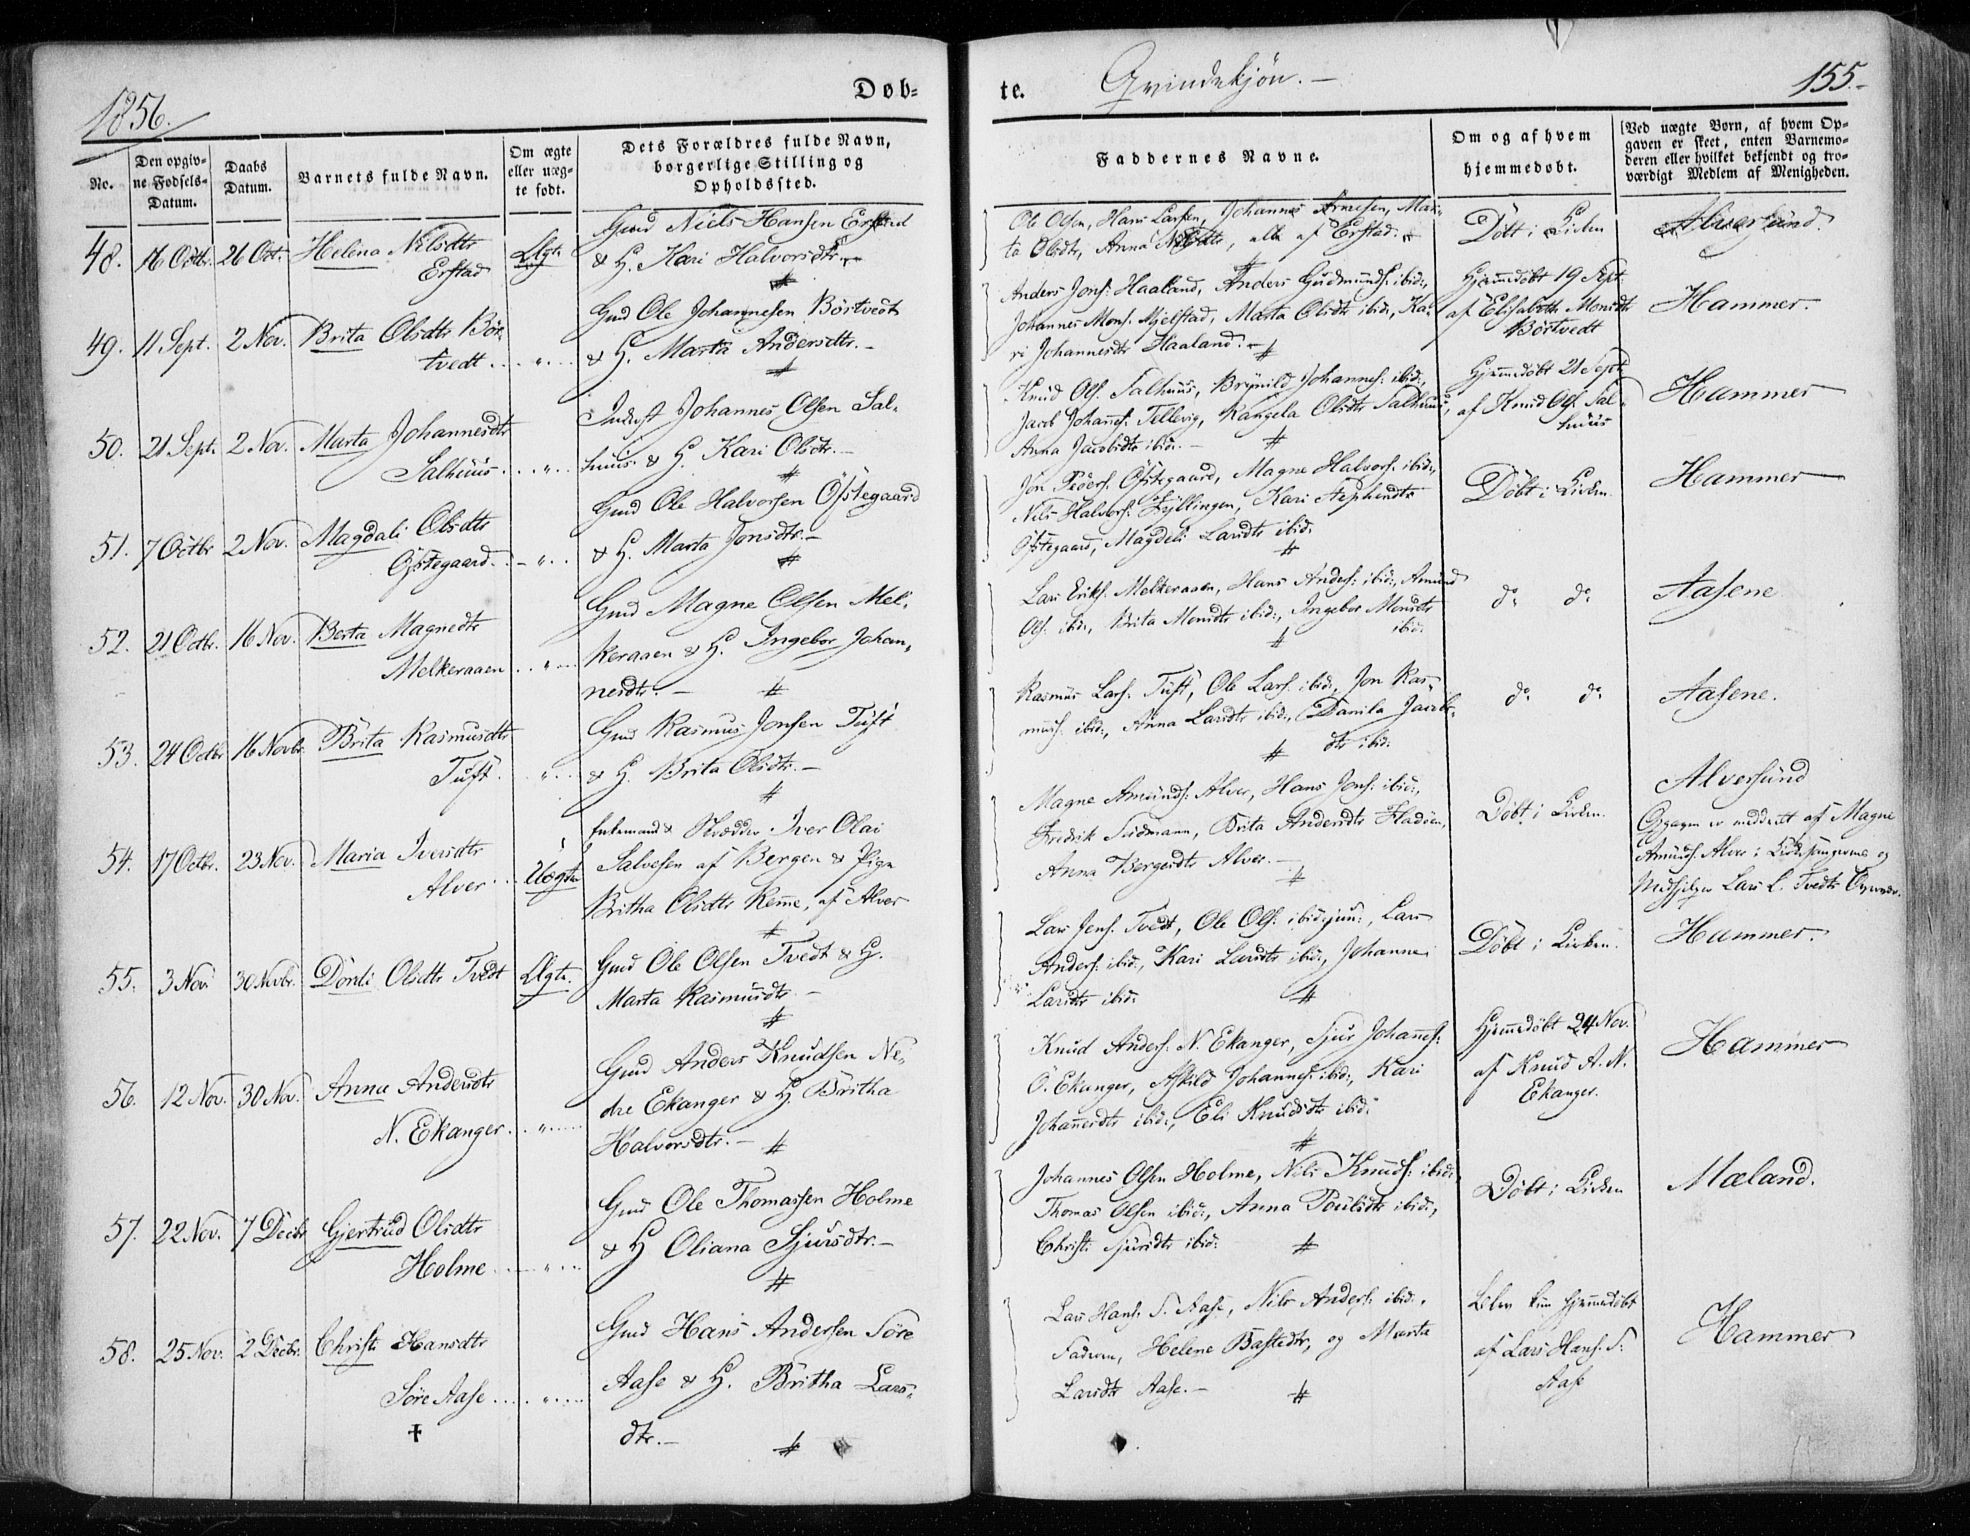 1856.
Døb-
te.
Qvindekjøn. —
155.-
No.
Den opgiv-
ne Fødsels-
Datum.
Daabs
Datum.
Barnets fulde Navn.
Om ægte
eller uæg-
te født.
Dets Forældres fulde Navn,
borgerlige Stilling og
Opholdssted.
Faddernes Navne.
Om og af hvem
hjemmedøbt.
Ved uægte Børn, af hvem Op-
gaven er skeet, enten Barnemo-
deren eller hvilket bekjendt og tro-
værdigt Medlem af Menigheden.
48. 16 Octbr. 26 Oct. Helena Nilsdtr
Erstad
Ægte
Gmd Niels Hansen Erstad
& H. Kari Halvorsdtr.
Ole Olsen, Hans Larsen, Johannes Arnesen, Mar-
ta Olsdtr, Anna Nilsdtr, alle af Erstad.
Døbt i Kirken
Alversund.
49. 11 Sept. 2 Nov. Brita Olsdtr Bör-
tvedt
Gmd Ole Johannesen Börtvedt
& H. Marta Andersdtr. —
Anders Jons: Haaland, Anders Gudmunds: ibid:,
Johannes Mons: Mjelstad, Marta Olsdtr ibid:, Ka-
ri Johannesdtr Haaland. —
Hjemmedøbt 19 Sept.
af Elisabeth Monsdtr
Börtvedt
Hammer.
50. 21 Sept. 2 Nov. Marta Johannesdtr
Salhuus
Inderst Johannes Olsen Sal-
huus & H. Kari Olsdtr. —
Knud Ols: Salhuus, Brynild Johannes: ibid:,
Jacob Johans: Tellevig, Rangela Olsdtr Salhuus,
Anna Jacobsdtr ibid. —
Hjemmedøbt 21 Sept
af Knud Ols: Sal-
huus
Hammer
51. 7 Octbr 2 Nov. Magdali Olsdtr
Ofstegaard
Gmd Ole Halvorsen Ofstegaard
& H. Marta Jonsdtr. —
Jon Peders: Ofstegaard, Magne Halvors: ibid:,
Nils Halvors: Fyllingen, Kari Stephensdtr
Ofstegaard, Magdeli Larsdtr ibid:
Døbt i Kirken.
Hammer
52. 21 Octbr. 16 Nov. Berta Magnedtr
Melkeraaen
Gmd Magne Olsen Mel-
keraaen & H. Ingebor Johan-
nesdtr. —
Lars Eriks: Melkeraaen, Hans Anders: ibid:, Amund
Ols: ibid:, Brita Monsdtr ibid:, Ingebor Monsdtr
ibid:
do do
Aasene
53. 24 Octbr 16 Novbr. Brita Rasmusdtr
Tuft.
Gmd Rasmus Jonsen Tuft
& H. Brita Olsdtr. —
Rasmus Lars: Tuft, Ole Lars: ibid:, Jon Ras-
muss: ibid:, Anna Larsdtr ibid:, Danila Jacobs-
dtr ibid:
do do
Aasene.
54. 17 Octbr. 23 Nov. Maria Iversdtr
Alver
Uægte
Enkemand & Skrædder Iver Olai
Salvesen af Bergen & Pige
Britha Olsdtr Remme, af Alver
Magne Amunds: Alver, Hans Jons: ibid:,
Fredrik Seidmann, Brita Andersdtr Fladöen,
Anna Bergesdtr Alver. —
Døbt i Kirken.
Alversund
Opgaven er meddeelt af Magne
Amunds: Alver i Kirkesangerens og
Medhjelper Lars L. Tvedts Overvær.
55. 3 Nov 30 Novbr. Dordi Olsdtr Tvedt
Ægte.
Gmd Ole Olsen Tvedt & H.
Marta Rasmusdtr. —
Lars Jens: Tvedt, Ole Ols: ibid: jun:, Lars
Anders: ibid:, Kari Larsdtr ibid:, Johanne
Larsdtr ibid:
Døbt i Kirken.
Hammer.
56. 12 Nov. 30 Nov. Anna Andersdtr
N. Ekanger
Gmd Anders Knudsen Ne-
dre Ekanger & H. Britha
Halvorsdtr. —
Knud Anders: N. Ekanger, Sjur Johannes:
Ö. Ekanger, Askild Johannes: ibid:, Kari
Johannesdtr ibid:, Eli Knudsdtr ibid:
Hjemmedøbt 24 Nov.
af Knud A. N.
Ekanger.
Hammer
57. 22 Nov. 7 Decbr Gjertrud Olsdtr
Holme
Gmd Ole Thomassen Holme
& H Oliana Sjursdtr. —
Johannes Olsen Holme, Nils Knuds: ibid:,
Thomas Olsen ibid:, Anna Poulsdtr ibid:,
Christi Sjursdtr ibid:
Døbt i Kirken
Mæland.
58. 25 Nov. 2 Decbr. Christi Hansdtr
Søre Aase
†
Gmd Hans Andersen Søre
Aase & H. Britha Lars-
dtr. —
Lars Hans: S. Aase, Nils Anders: ibid:,
Faderen, Helene Bastedtr, og Marta
Larsdtr Aase. —
Blev kun hjemmedøbt
af Lars Hans: S.
Aase
Hammer